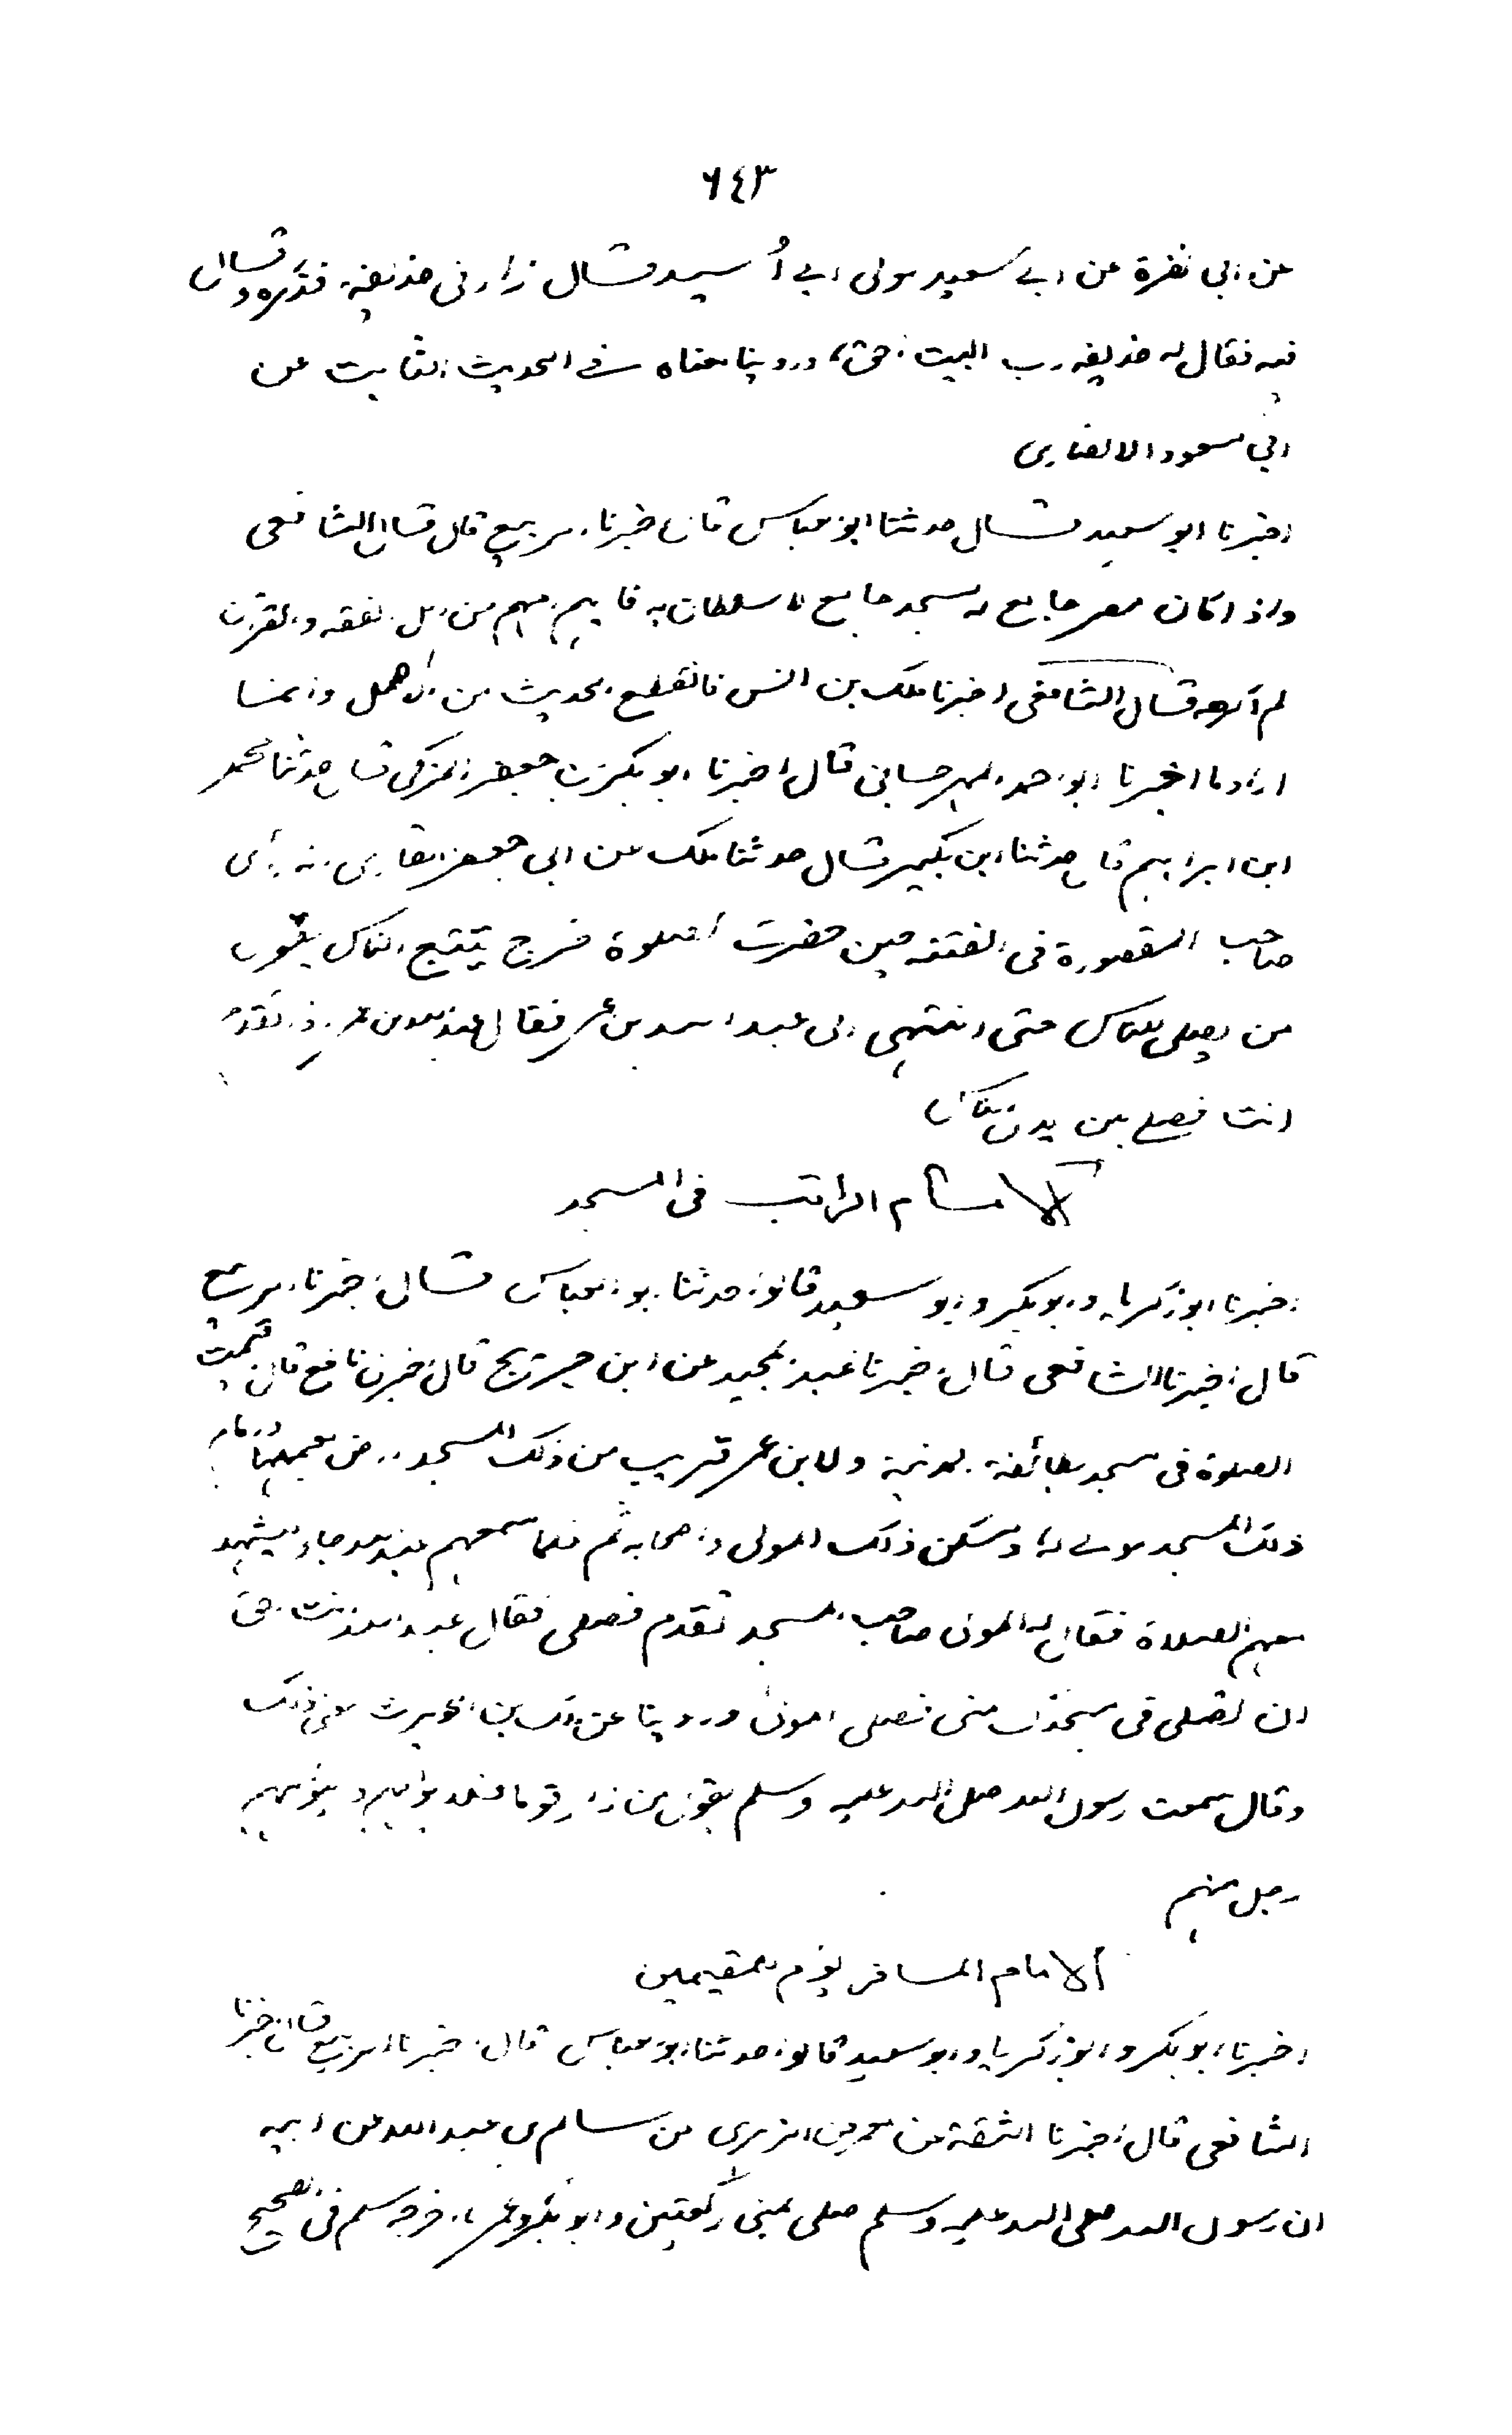 ٦٤٣
عن ابي نضرة عن ابي سعيد مولى ابي أسيد قال زارني حذيفة فذكره وقال
فيه فقال له حذيفة رب البيت احق وروينا معناه في الحديث الثابت عن
ابي مسعود الانصاري
اخبرنا ابو سعيد قال حدثنا ابو العباس قال اخبرنا الربيع قال قال الشافعي
واذا كان مصر جامع له مسجد جامع لا سلطان به فايهم امهم من اهل الفقه والقران
لم اكرهه قال الشافعي اخبرنا ملك بن انس فانقطع الحديث من الاصل وانما
اراد ما اخبرنا ابو احمد المهرجاني قال اخبرنا ابو بكر بن جعفر المزكي قال حدثنا محمد
ابن ابراهيم قال حدثنا ابن بكير قال حدثنا ملك عن ابي جعفر القاري انه راى
صاحب المقصورة في الفتنة حين حضرت الصلوة خرج يتتبع الناس يقول
من يصلي للناس حتى انتهى الى عبد الله بن عمر فقال عبد الله بن عمر تقدم
انت فصل بين يدي الناس
الامام الراتب في المسجد
اخبرنا ابو زكريا وابو بكر وابو سعيد قالوا حدثنا ابو العباس قال اخبرنا الربيع
قال اخبرنا الشافعي قال اخبرنا عبد المجيد عن ابن جريج قال اخبرني نافع قال اقيمت
الصلوة في مسجد بطائفة المدينة ولابن عمر قريب من ذلك المسجد ارض يعملها وامام
ذلك المسجد مولى له ومسكن ذلك المولى واصحابه ثم فلما سمعهم عبد الله جاء ليشهد
معهم الصلاة فقال له المولى صاحب المسجد تقدم فصلي فقال عبد الله انت احق
ان تصلي في مسجدك مني فصلى المولى وروينا عن ملك بن الحويرث معنى ذلك
وقال سمعت رسول الله صلى الله عليه وسلم يقول من زار قوما فلا يؤمهم وليؤمهم
رجل منهم
الامام المسافر يؤم المقيمين
اخبرنا ابو بكر وابو زكريا وابو سعيد قالوا حدثنا ابو العباس قال اخبرنا الربيع قال اخبرنا
الشافعي قال اخبرنا الثقة عن معمر عن الزهري عن سالم بن عبد الله عن ابيه
ان رسول الله صلى الله عليه وسلم صلى بمنى ركعتين وابو بكر وعمر اخرجه مسلم في الصحيح